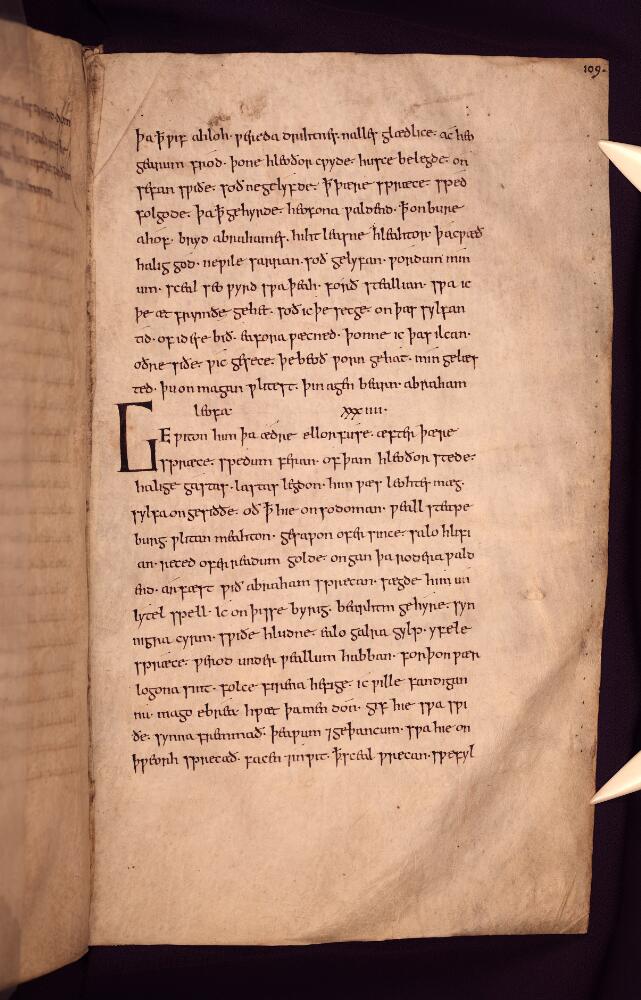 109.
þa ꝥ ƿif ahloh· ƿereda drihtnes· nalles glædlice· ac heo
gearum frod· þone hleoðor cƿyde· husce belegde· on
sefan sƿiðe· soð ne gelyfde· ꝥ þære spræce· sped
folgode· þa ꝥ gehyrde· heofona ƿaldend· ꝥ on bure
ahof· bryd abrahames· hiht leasne hleahtor· þa cƿæð
halig god· ne ƿile sarran· soð gelyfan· ƿordum min
um· sceal seo ƿyrd sƿa þeah· forð steallian· sƿa ic
þe æt frymðe gehet· soð ic þe secge· on þas sylfan
tid· of idese bið· eafora ƿæcned· þonne ic þas ilcan·
oðre siðe· ƿic gesece· þe beoð ƿorn gehat· min gelæs
ted· þu on magan ƿlitest· þin agen bearn· abraham
leofa·
xxxiiii·
Geƿiton him þa ædre ellorfuse· æfter þære
spræce· spedum feran· of þam hleoðor stede·
halige gastas· lastas legdon· him ƿæs leohtes mæg·
sylfa on gesiððe· oð ꝥ hie on sodoman· ƿeall steape
burg ƿlitan meahton· gesaƿon ofer since· salo hlifi
an· reced ofer readum golde· ongan þa rodera ƿald
end· arfæst ƿið abraham sprecan· sægde him un
lytel spell· Ic on þisse byrig· bearhtm gehyre· syn
nigra cyrm· sƿiðe hludne· ealo galra gylp· yfele
spræce· ƿerod under ƿeallum habban· forþon ƿær
logona sint· folce firena hefige· ic ƿille fandigan
nu· mago ebrea· hƿæt þa men don· gif hie sƿa sƿi
ðe· synna fremmað· þeaƿum ⁊ geþancum· sƿa hie on
þƿeorh sprecað· facen ⁊ inƿit· ꝥ sceal ƿrecan· sƿefyl